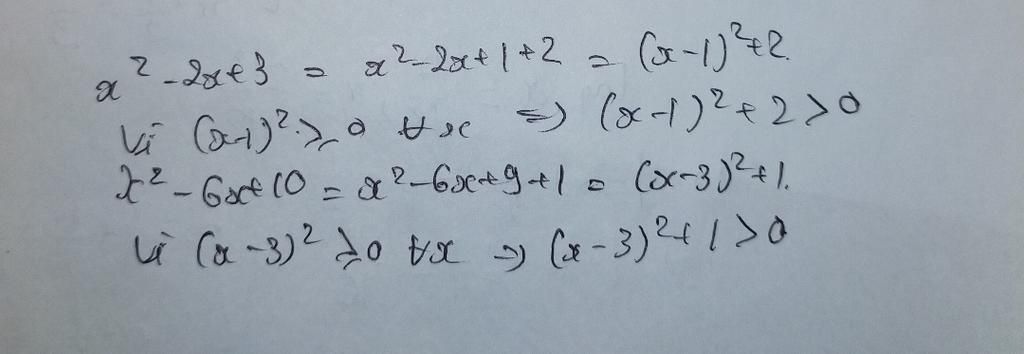 x² - 2x + 3 = x² - 2x + 1 + 2 = (x - 1)² + 2.
Vì (x-1)² ≥ 0 ∀x ⇒ (x-1)² + 2 > 0
x² - 6x + 10 = x² - 6x + 9 + 1 = (x-3)² + 1.
Vì (x-3)² ≥ 0 ∀x ⇒ (x-3)² + 1 > 0